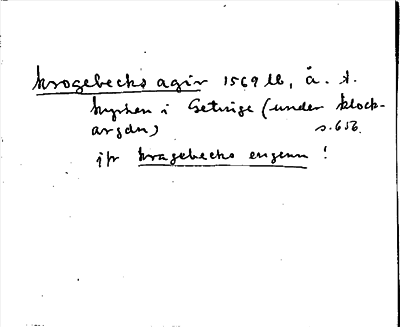 krogebecks agir 1569 lb, å. t.
kyrken i Getinge (under klock-
argdn) s. 656
jfr kragebecks engenn !